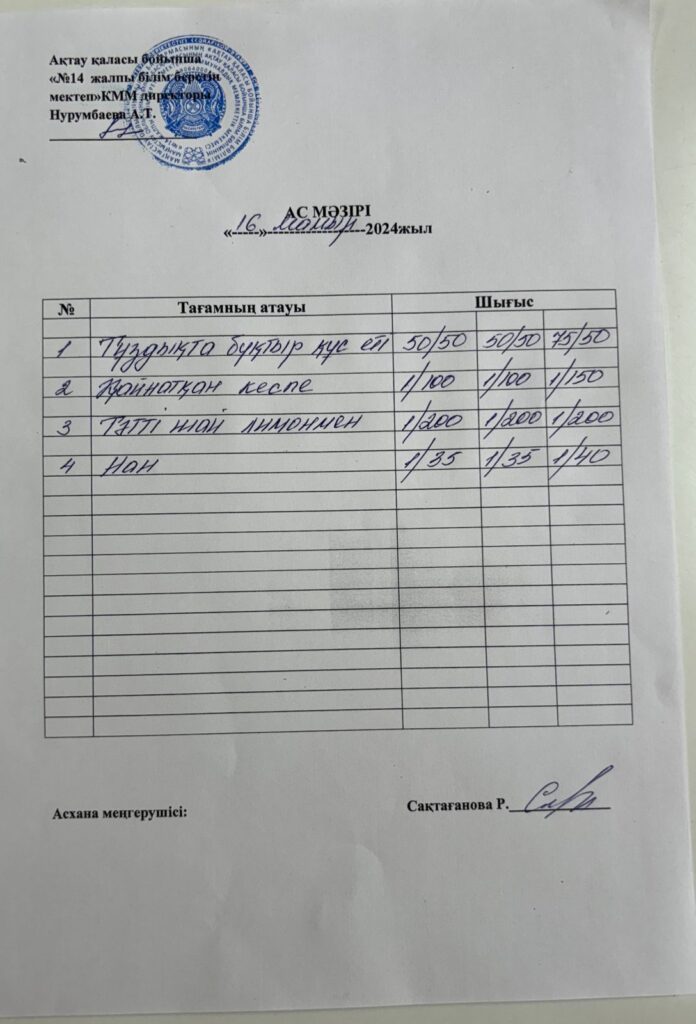 Ақтау қаласы бойынша
«№14 жалпы білім беретін
мектеп»КММ директоры
Нурумбаева А.Т.
АС МӘЗІРІ
«16» мамыр 2024жыл
№ Тағамның атауы Шығыс
1 Тұздықта бұқтыр құс еті 50/50 50/50 75/50
2 Қайнатқан кеспе 1/100 1/100 1/150
3 Тәтті шай лимонмен 1/200 1/200 1/200
4 Нан 1/35 1/35 1/40
Асхана меңгерушісі: Сақтағанова Р.